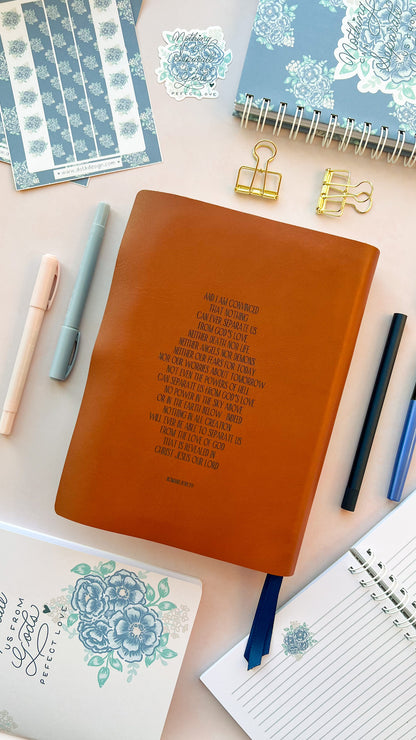 Nothing
Separate
God's
PERFECT LOVE
Nothing
www.
design.com
AND I AM CONVINCED
THAT NOTHING
CAN EVER SEPARATE US
FROM GOD'S LOVE
NEITHER DEATH NOR LIFE
NEITHER ANGELS NOR DEMONS
NEITHER OUR FEARS FOR TODAY
NOR OUR WORRIES ABOUT TOMORROW
NOT EVEN THE POWERS OF HELL
CAN SEPARATE US FROM GOD'S LOVE
NO POWER IN THE SKY ABOVE
OR IN THE EARTH BELOW INDEED
NOTHING IN ALL CREATION
WILL EVER BE ABLE TO SEPARATE US
FROM THE LOVE OF GOD
THAT IS REVEALED IN
CHRIST JESUS OUR LORD
US FROM
God's
PERFECT LOVE